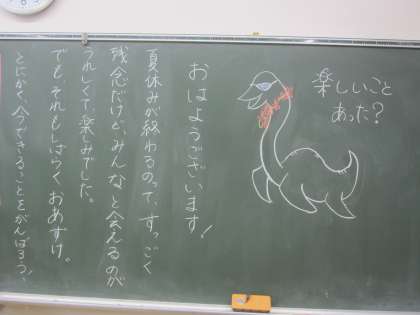 楽しいこと
あった?
おはようございます!
夏休みが終わるのって、すっごく
残念だけど、みんなと会えるのが
うれしくて、楽しみでした。
でも、それもしばらくおあずけ。
とにかく、今できることをがんばろう!